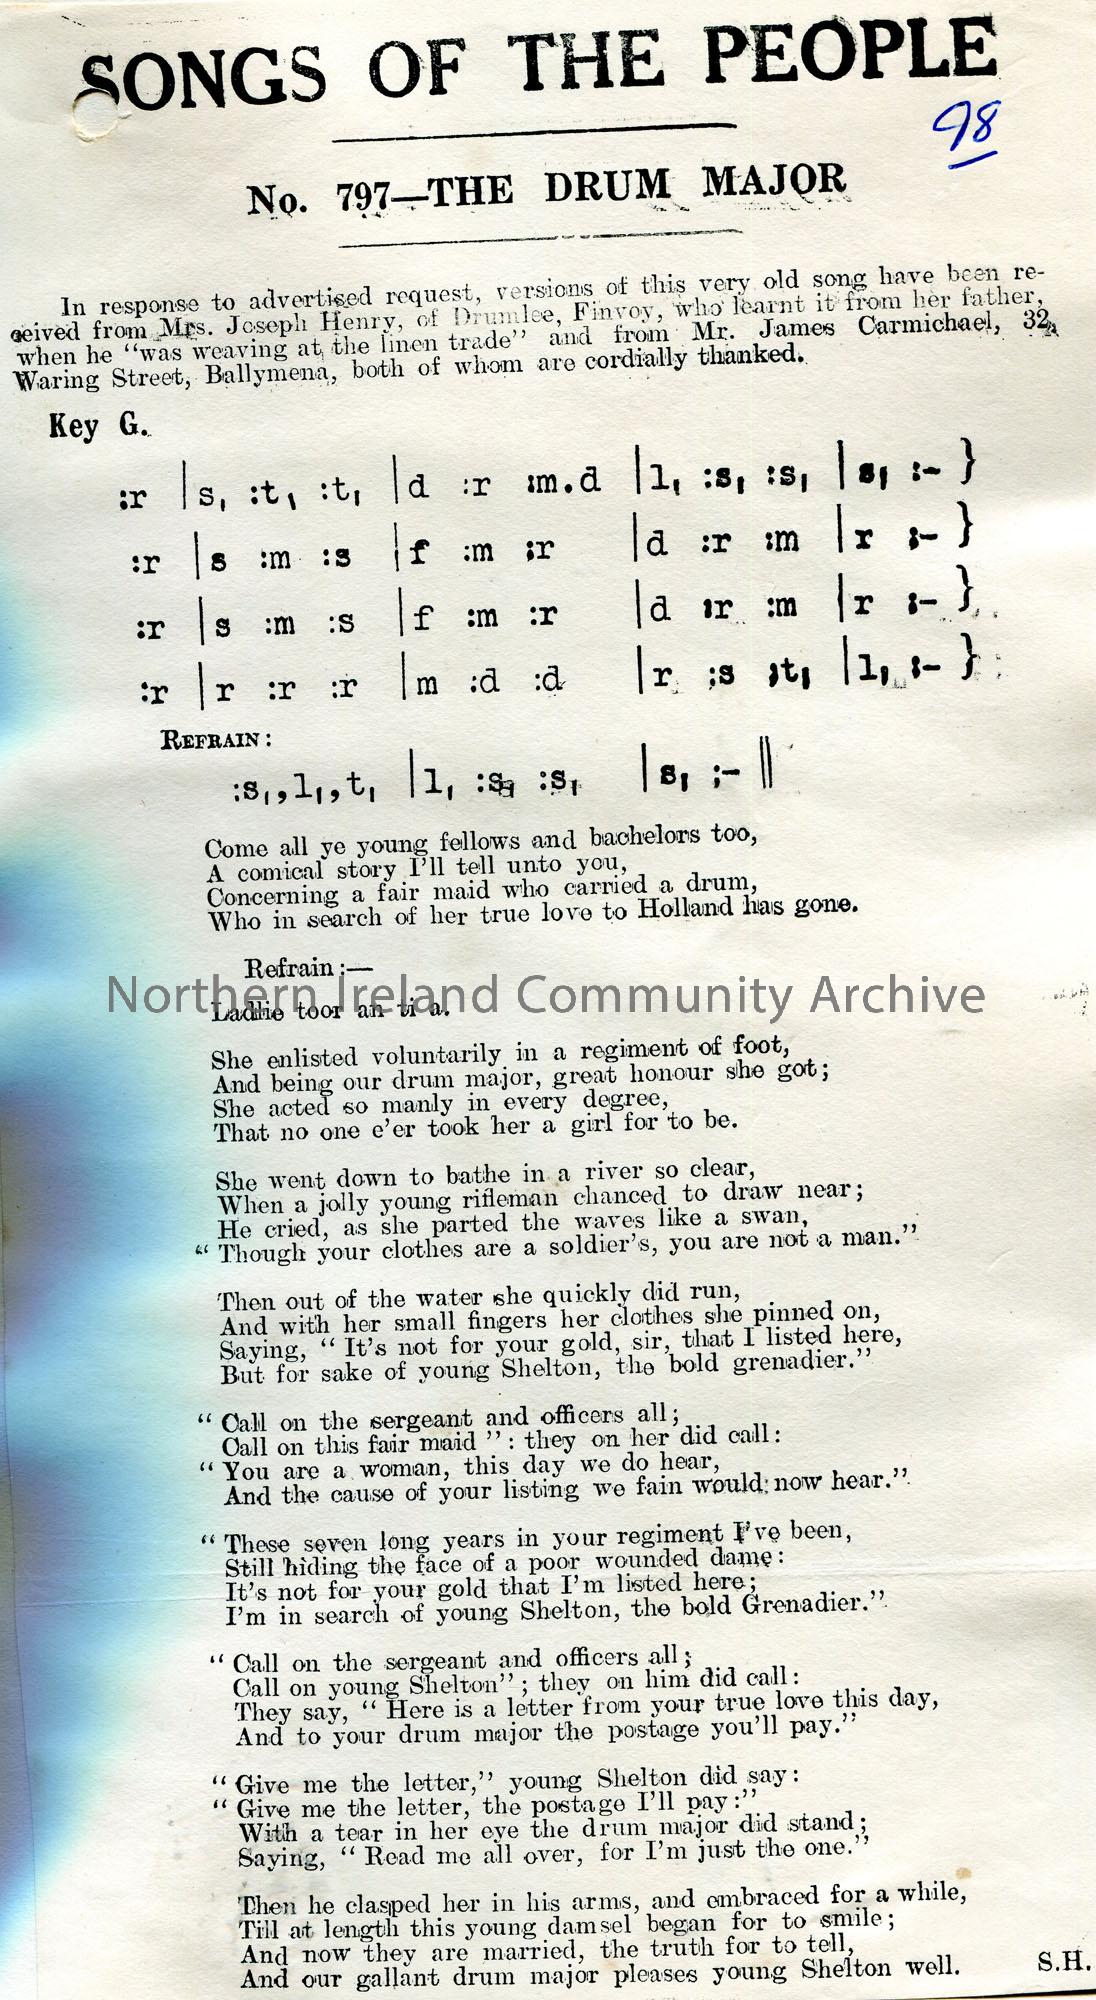 SONGS OF THE PEOPLE
98
No. 797—THE DRUM MAJOR
In response to advertised request, versions of this very old song have been re-
ceived from Mrs. Joseph Henry, of Drumlee, Finvoy, who learnt it from her father,
when he "was weaving at the linen trade" and from Mr. James Carmichael, 32,
Waring Street, Ballymena, both of whom are cordially thanked.
Key G.
:r |s, :t, :t, |d :r :m.d |l, :s, :s, |s, :- }
:r |s :m :s |f :m :r |d :r :m |r :- }
:r |s :m :s |f :m :r |d :r :m |r :- }
:r |r :r :r |m :d :d |r :s :t, |l, :- }
REFRAIN:
:s,,l,,t, |l, :s, :s, |s, :- ||
Come all ye young fellows and bachelors too,
A comical story I'll tell unto you,
Concerning a fair maid who carried a drum,
Who in search of her true love to Holland has gone.
Refrain:—
Northern Ireland Community Archive
Laddie toor an ti a.
She enlisted voluntarily in a regiment of foot,
And being our drum major, great honour she got;
She acted so manly in every degree,
That no one e'er took her a girl for to be.
She went down to bathe in a river so clear,
When a jolly young rifleman chanced to draw near;
He cried, as she parted the waves like a swan,
"Though your clothes are a soldier's, you are not a man."
Then out of the water she quickly did run,
And with her small fingers her clothes she pinned on,
Saying, "It's not for your gold, sir, that I listed here,
But for sake of young Shelton, the bold grenadier."
"Call on the sergeant and officers all;
Call on this fair maid": they on her did call:
"You are a woman, this day we do hear,
And the cause of your listing we fain would now hear."
"These seven long years in your regiment I've been,
Still hiding the face of a poor wounded dame:
It's not for your gold that I'm listed here;
I'm in search of young Shelton, the bold Grenadier."
"Call on the sergeant and officers all;
Call on young Shelton"; they on him did call:
They say, "Here is a letter from your true love this day,
And to your drum major the postage you'll pay."
"Give me the letter," young Shelton did say:
"Give me the letter, the postage I'll pay:"
With a tear in her eye the drum major did stand;
Saying, "Read me all over, for I'm just the one."
Then he clasped her in his arms, and embraced for a while,
Till at length this young damsel began for to smile;
And now they are married, the truth for to tell,
And our gallant drum major pleases young Shelton well. S.H.